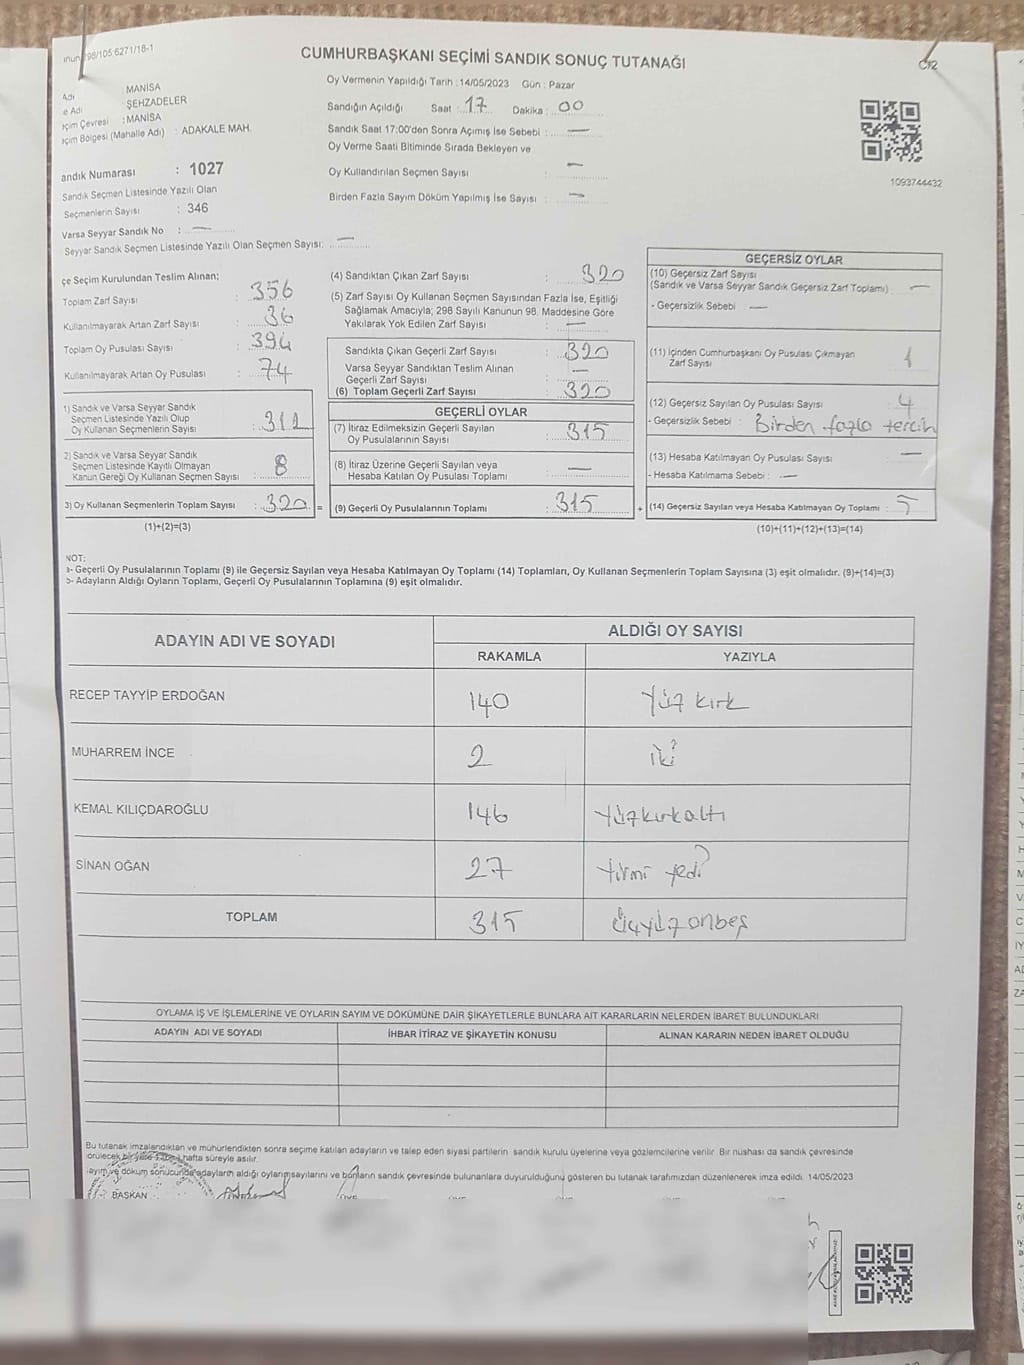 98/105 6271/18-1
CUMHURBAŞKANI SEÇİMİ SANDIK SONUÇ TUTANAĞI
C12
Adı : MANİSA
e Adı : ŞEHZADELER
eçim Çevresi : MANİSA
eçim Bölgesi (Mahalle Adı) : ADAKALE MAH.
andık Numarası : 1027
Sandık Seçmen Listesinde Yazılı Olan
Seçmenlerin Sayısı : 346
Varsa Seyyar Sandık No : —
Seyyar Sandık Seçmen Listesinde Yazılı Olan Seçmen Sayısı: —
Oy Vermenin Yapıldığı Tarih : 14/05/2023 Gün : Pazar
Sandığın Açıldığı Saat : 17 Dakika : 00
Sandık Saat 17:00'den Sonra Açımış İse Sebebi : —
Oy Verme Saati Bitiminde Sırada Bekleyen ve
Oy Kullandırılan Seçmen Sayısı : —
Birden Fazla Sayım Döküm Yapılmış İse Sayısı : —
1093744432
çe Seçim Kurulundan Teslim Alınan;
Toplam Zarf Sayısı : 356
Kullanılmayarak Artan Zarf Sayısı : 36
Toplam Oy Pusulası Sayısı : 394
Kullanılmayarak Artan Oy Pusulası : 74
1) Sandık ve Varsa Seyyar Sandık
Seçmen Listesinde Yazılı Olup
Oy Kullanan Seçmenlerin Sayısı : 312
2) Sandık ve Varsa Seyyar Sandık
Seçmen Listesinde Kayıtlı Olmayan
Kanun Gereği Oy Kullanan Seçmen Sayısı : 8
3) Oy Kullanan Seçmenlerin Toplam Sayısı : 320 =
(1)+(2)=(3)
(4) Sandıktan Çıkan Zarf Sayısı : 320
(5) Zarf Sayısı Oy Kullanan Seçmen Sayısından Fazla İse, Eşitliği
Sağlamak Amacıyla; 298 Sayılı Kanunun 98. Maddesine Göre
Yakılarak Yok Edilen Zarf Sayısı : —
Sandıkta Çıkan Geçerli Zarf Sayısı : 320
Varsa Seyyar Sandıktan Teslim Alınan
Geçerli Zarf Sayısı : —
(6) Toplam Geçerli Zarf Sayısı : 320
GEÇERLİ OYLAR
(7) İtiraz Edilmeksizin Geçerli Sayılan
Oy Pusulalarının Sayısı : 315
(8) İtiraz Üzerine Geçerli Sayılan veya
Hesaba Katılan Oy Pusulası Toplamı : —
(9) Geçerli Oy Pusulalarının Toplamı : 315 +
GEÇERSİZ OYLAR
(10) Geçersiz Zarf Sayısı
(Sandık ve Varsa Seyyar Sandık Geçersiz Zarf Toplamı) : —
- Geçersizlik Sebebi : —
(11) İçinden Cumhurbaşkanı Oy Pusulası Çıkmayan
Zarf Sayısı : 1
(12) Geçersiz Sayılan Oy Pusulası Sayısı : 4
- Geçersizlik Sebebi : Birden fazla tercih
(13) Hesaba Katılmayan Oy Pusulası Sayısı : —
- Hesaba Katılmama Sebebi : —
(14) Geçersiz Sayılan veya Hesaba Katılmayan Oy Toplamı : 5
(10)+(11)+(12)+(13)=(14)
NOT:
a- Geçerli Oy Pusulalarının Toplamı (9) ile Geçersiz Sayılan veya Hesaba Katılmayan Oy Toplamı (14) Toplamları, Oy Kullanan Seçmenlerin Toplam Sayısına (3) eşit olmalıdır. (9)+(14)=(3)
b- Adayların Aldığı Oyların Toplamı, Geçerli Oy Pusulalarının Toplamına (9) eşit olmalıdır.
ADAYIN ADI VE SOYADI
ALDIĞI OY SAYISI
RAKAMLA YAZIYLA
RECEP TAYYİP ERDOĞAN 140 Yüz kırk
MUHARREM İNCE 2 iki
KEMAL KILIÇDAROĞLU 146 Yüzkırkaltı
SİNAN OĞAN 27 Yirmi yedi
TOPLAM 315 Üçyüzonbeş
OYLAMA İŞ VE İŞLEMLERİNE VE OYLARIN SAYIM VE DÖKÜMÜNE DAİR ŞİKAYETLERLE BUNLARA AİT KARARLARIN NELERDEN İBARET BULUNDUKLARI
ADAYIN ADI VE SOYADI İHBAR İTİRAZ VE ŞİKAYETİN KONUSU ALINAN KARARIN NEDEN İBARET OLDUĞU
Bu tutanak imzalandıktan ve mühürlendikten sonra seçime katılan adayların ve talep eden siyasi partilerin sandık kurulu üyelerine veya gözlemcilerine verilir. Bir nüshası da sandık çevresinde
görülecek bir yere hafta süreyle asılır.
ayım ve döküm sonucunda adayların aldığı oyların sayılarını ve bunların sandık çevresinde bulunanlara duyurulduğunu gösteren bu tutanak tarafımızdan düzenlenerek imza edildi. 14/05/2023
BAŞKAN